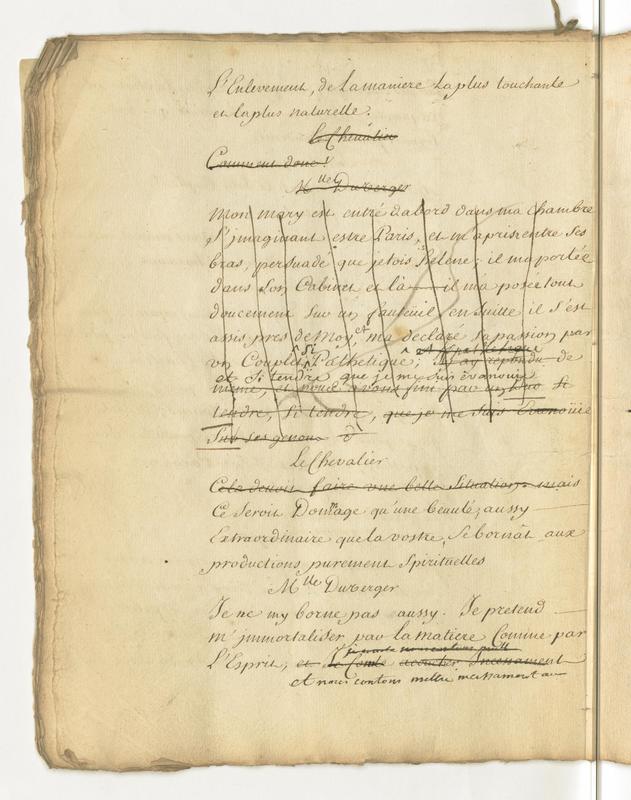 L'Enlevement, de la maniere la plus touchante
et la plus naturelle.
le Chevalier
Comment donc!
Mlle Duverger
Mon mary est entré dabord dans ma chambre
S'jmaginant estre Paris, et m'a prise entre ses
bras, persuadé que jetois helene; il ma portée
dans son Cabinet et là il ma posée tout
doucement sur un fauteüil en suitte il s'est
assis pres de Moy, et ma declaré sa passion par
un Couplet si Pathétique, et si pathetique Je luy ay repondu de
et si tendre que je me suis evanouie
même, et nous avons fini par un Duo si
tendre, si tendre, que je me suis Evanoüie
Sur ses genoux
Le Chevalier
Cela devoit faire une belle Situation mais
Ce seroit Dommage qu'une beauté, aussy
Extraordinaire que la vostre, Se bornât aux
productions purement Spirituelles
Mlle Duverger
Je ne my borne pas aussy. Je pretend
m'jmmortaliser par la matiere Comme par
L'Esprit, et le Comte accoucher Incessament
et nous contons mettre incessament au